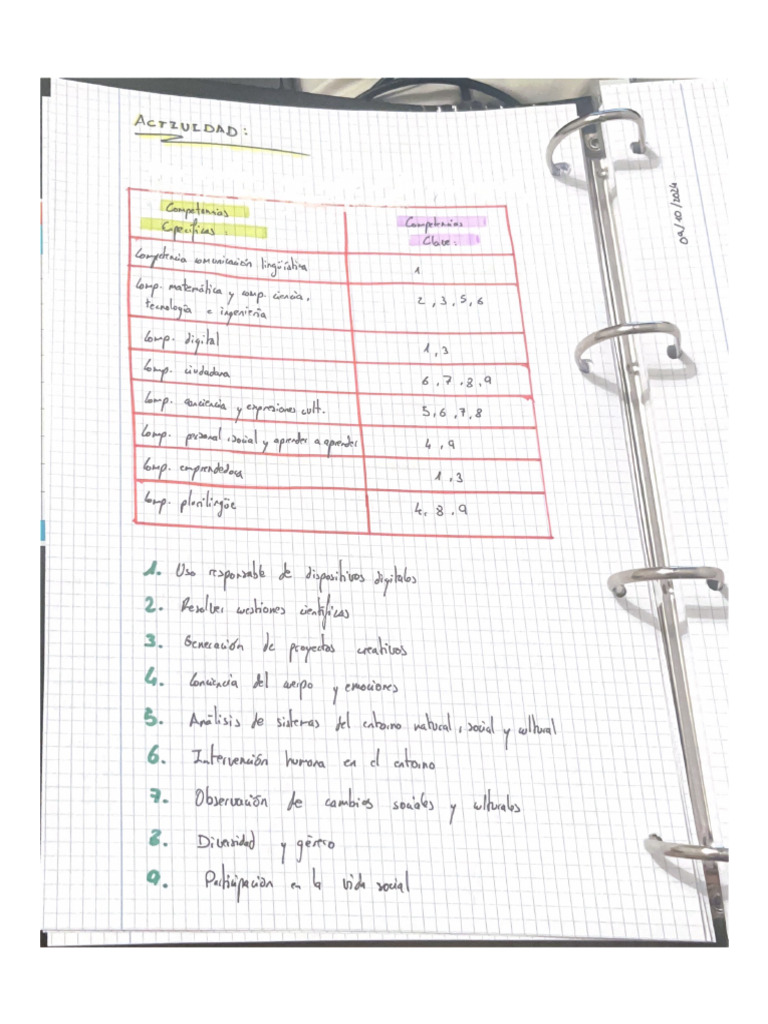 ACTIVIDAD:
09/10/2024
Competencias
Específicas:
Competencias
Clave:
Competencia comunicación lingüística
1
Comp. matemática y comp. ciencia,
tecnología e ingeniería
2, 3, 5, 6
Comp. digital
1, 3
Comp. ciudadana
6, 7, 8, 9
Comp. conciencia y expresiones cult.
5, 6, 7, 8
Comp. personal, social y aprender a aprender
4, 9
Comp. emprendedora
1, 3
Comp. plurilingüe
4, 8, 9
1. Uso responsable de dispositivos digitales
2. Resolver cuestiones científicas
3. Generación de proyectos creativos
4. Conciencia del cuerpo y emociones
5. Análisis de sistemas del entorno natural, social y cultural
6. Intervención humana en el entorno
7. Observación de cambios sociales y culturales
8. Diversidad y género
9. Participación en la vida social